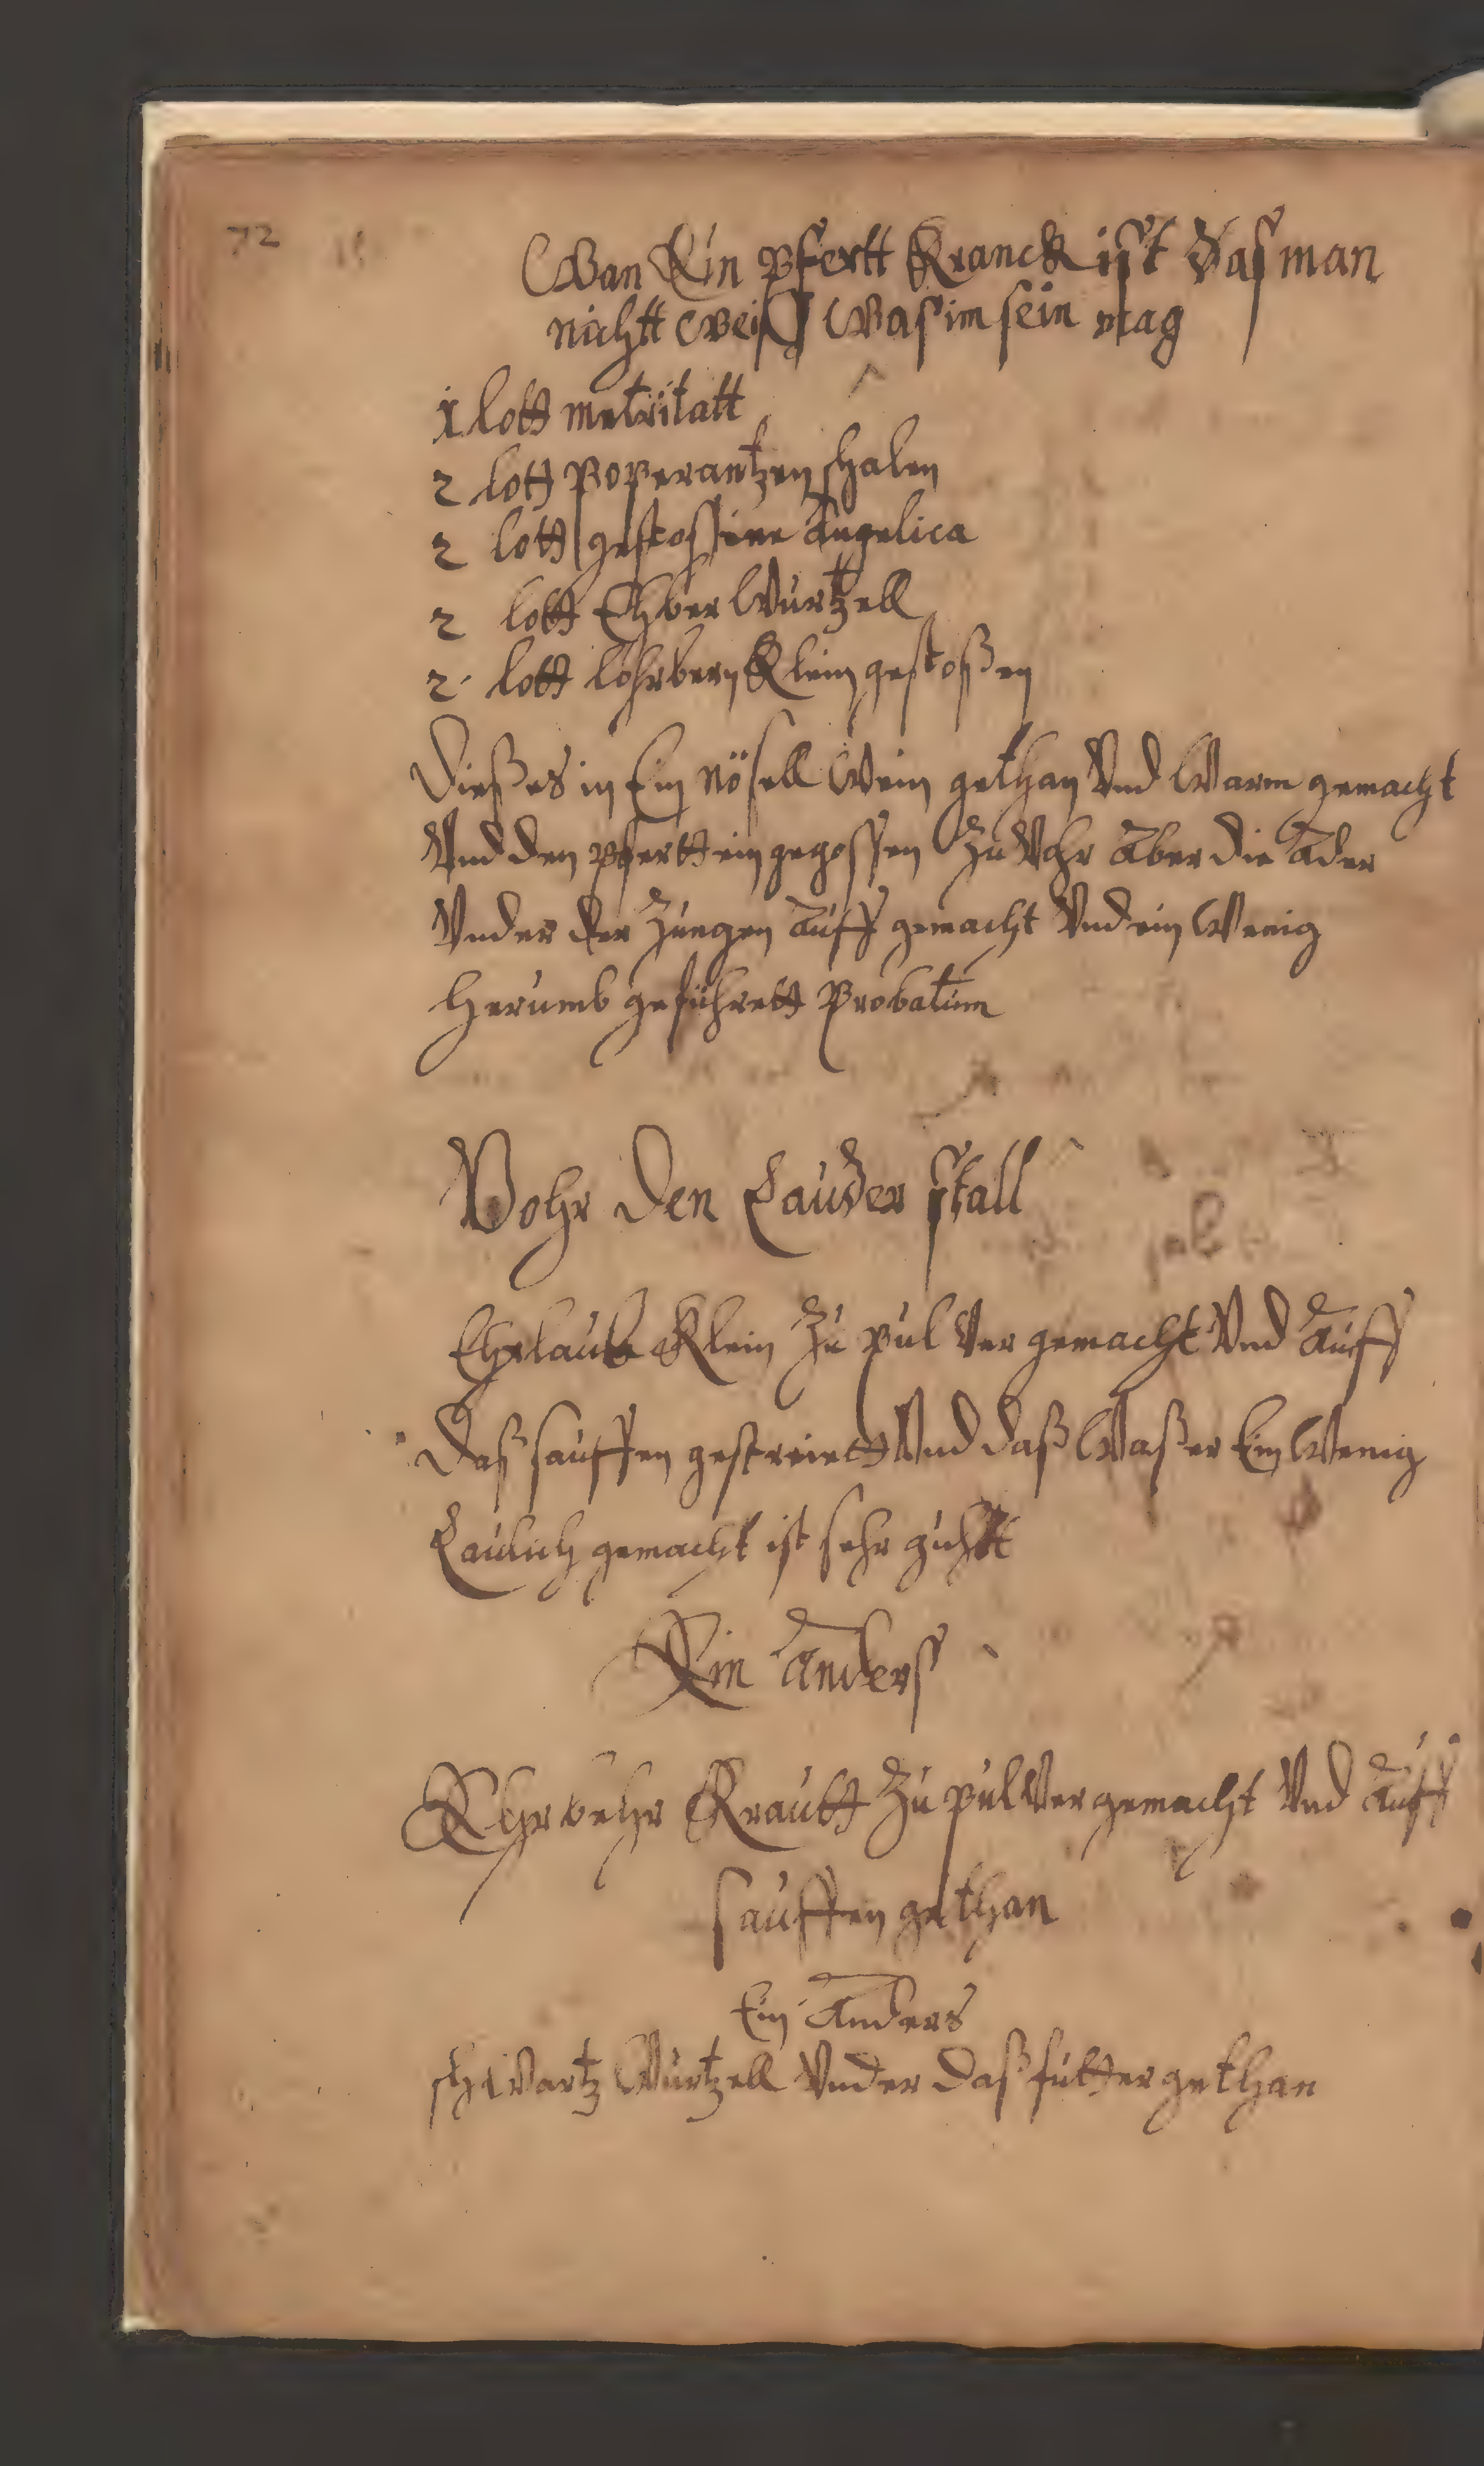 72
Wan Ein pfertt Kranck ist das man
nichtt weiß Was im sein mag
1 lott metritatt
2 lott Poperantzen schalen
2 lott gestossene Angelica
2 lott Ehber Wurtzell
2 lott lohrbern Klein gestoßen
Dießes in Ein nösell Wein gethan Vnd Warm gemacht
Vnd den pfertt ein gegossen Zu Vohr Aber die Ader
Vnder der Zungen auff gemacht Vnd ein Wenig
Herumb geführett Probatum
Vohr den Lauder stall
Klein Zu pul Ver gemacht Vnd Auff
Daß sauffen gestreiett Vnd daß Waßer Ein Wenig
Laulich gemacht ist sehr guhtt
Ein Anders
Krautt Zu pulVer gemacht Vnd Auff
sauffen gethan
Ein Anders
schwartz Wurtzell Vnder daß futter gethan